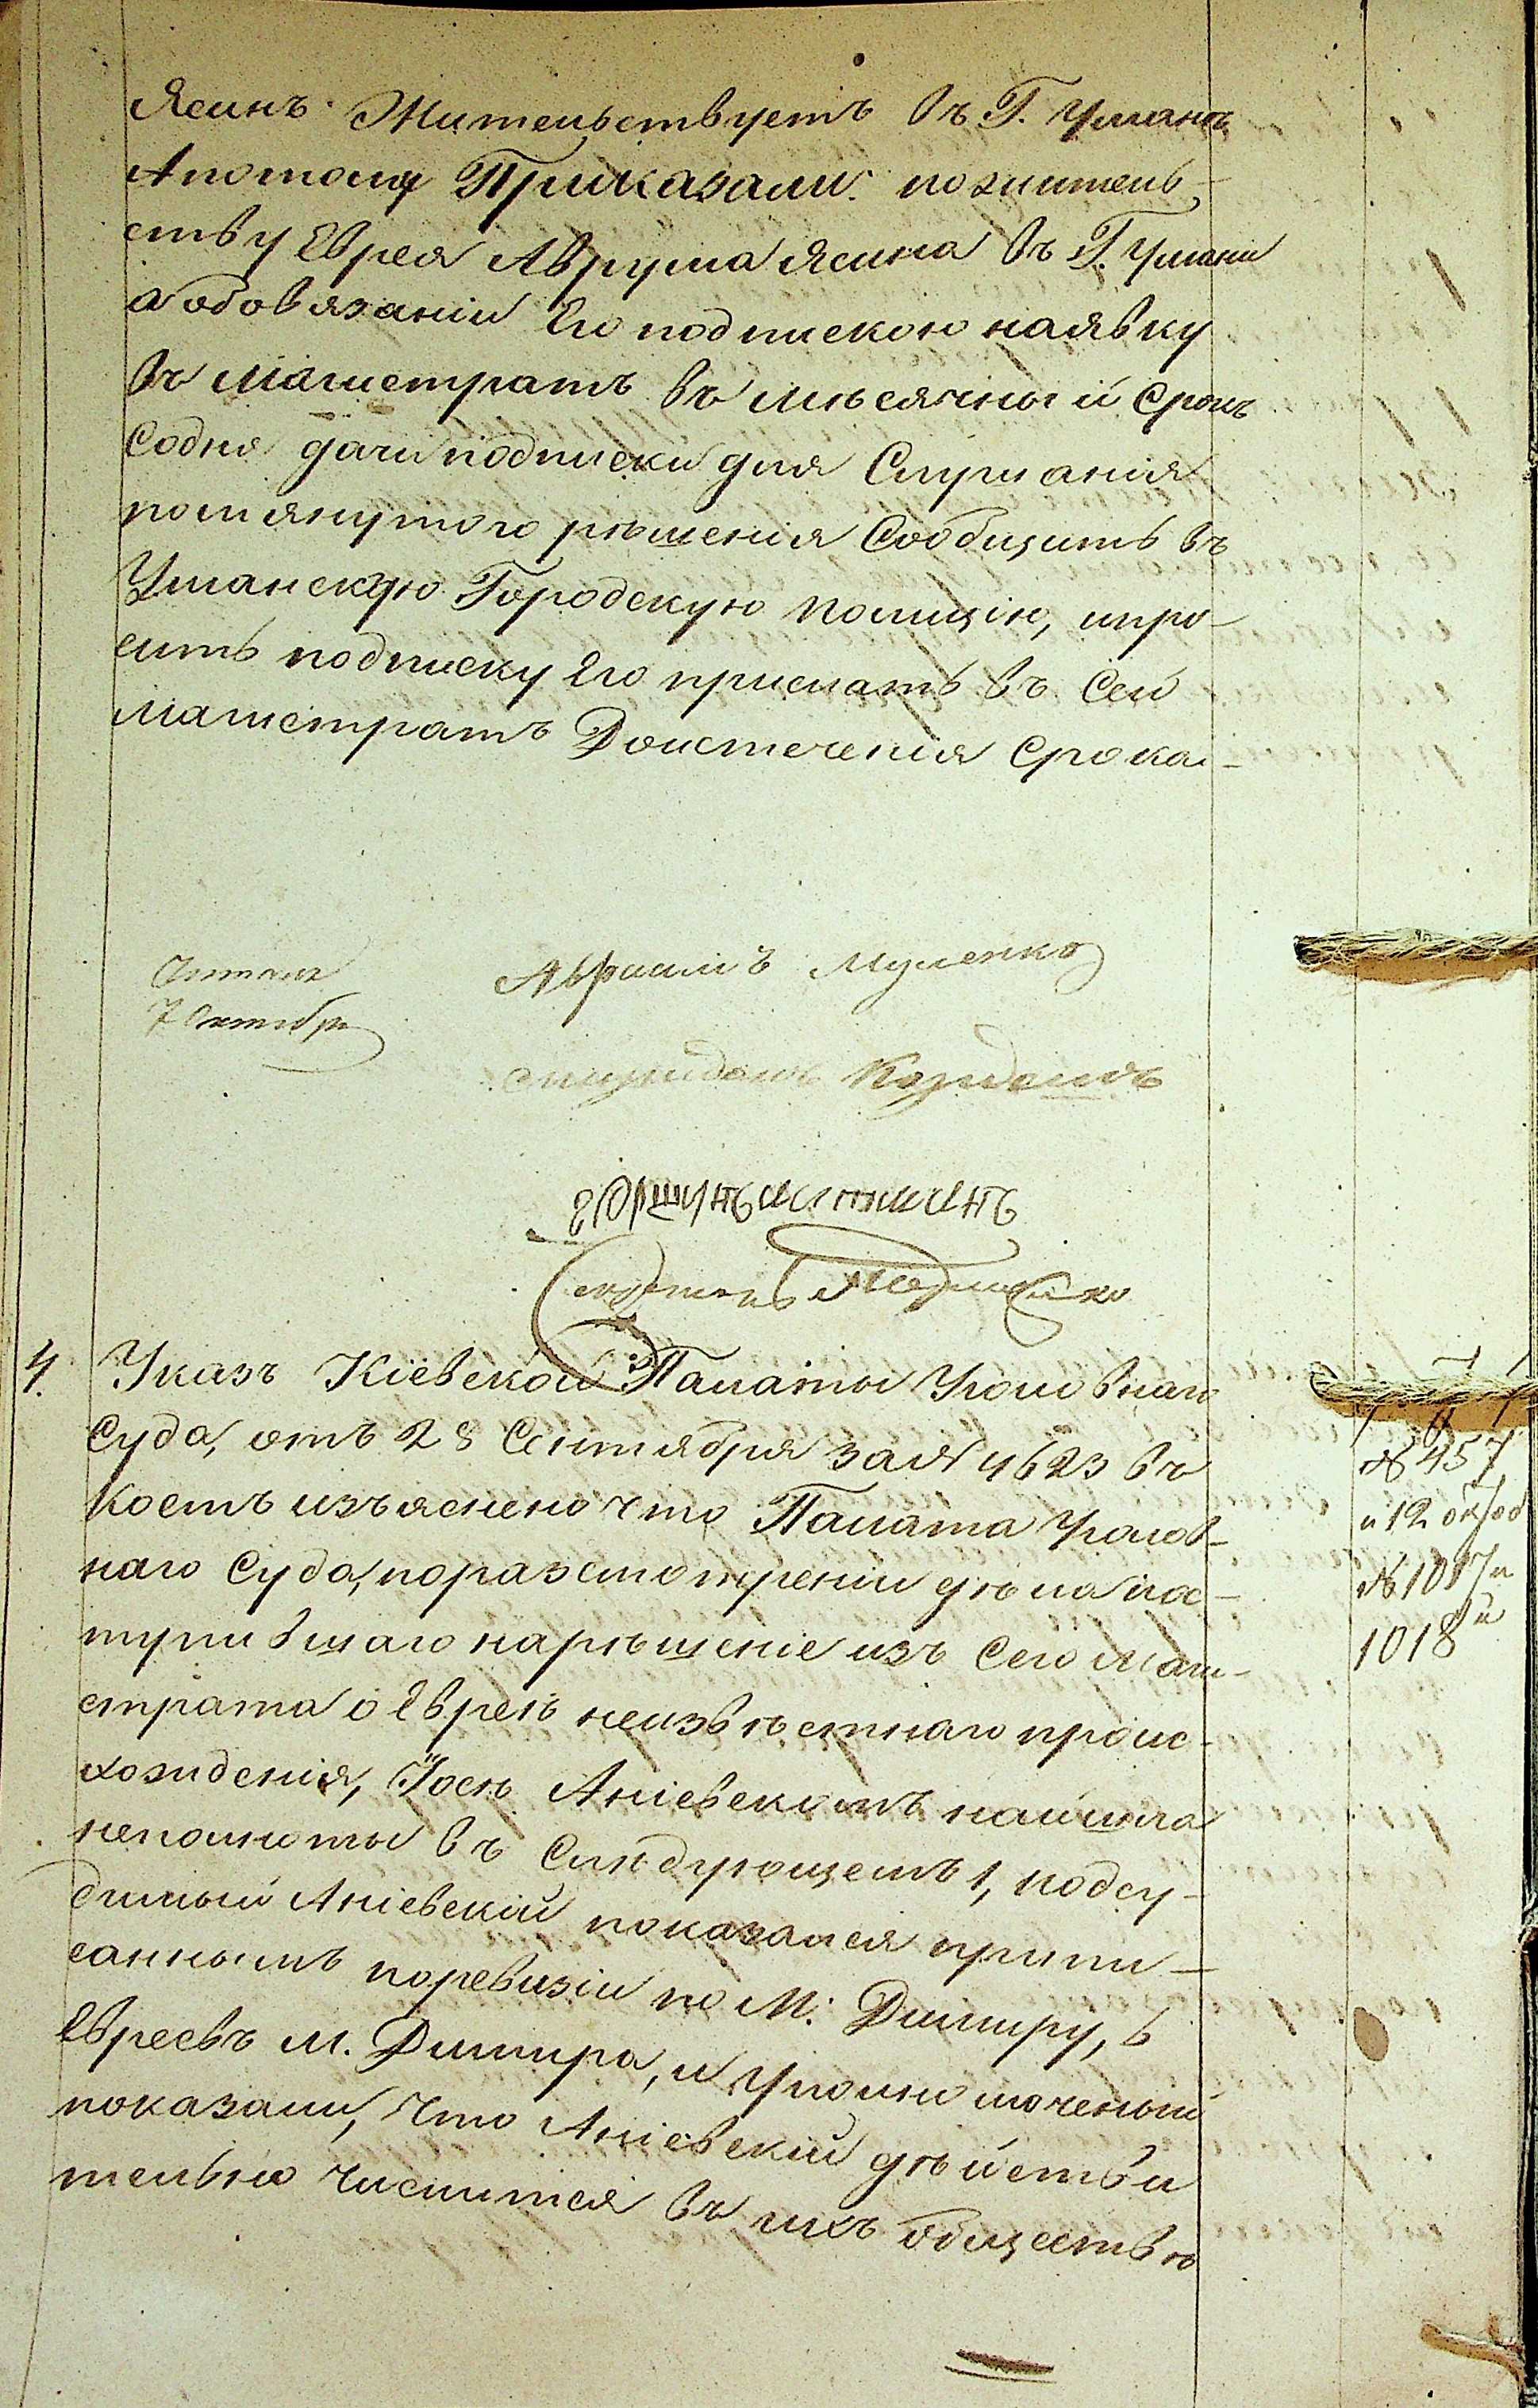 Ясинъ Жительствуетъ въ Г. Уманѣ
Апотому Приказали: пожитель-
ству Еврея Аврума Ясина въ Г. Умани
а обовязаніи Его подпискою наявку
въ Магистратъ въ мѣсячный срокъ
Содня дачи подписки для Слушанія
помянутого рѣшенія Сообщить въ
Уманскую Городскую Полицію, ипро-
сить подписку Его прислать въ Сей
Магистратъ Доистеченія Срока-
Читалъ
7 Октября
4. Указъ Кіевской Палаты Уголовнаго
Суда, отъ 28 Сентября за № 4623 въ
Коемъ изъяснено что Палата Уголов-
наго Суда, поразсмотреніи дѣла пос-
тупившаго нарѣшеніе изъ Сего Маги-
страта о Евреѣ неизвѣстнаго проис-
хожденія, Іосѣ Аніевскомъ нашла
неполноты въ Слѣдующемъ 1, подсу-
димый Аніевскій показался припи-
саннымъ поревизіи по М: Димиру, 6
Евреевъ м. Димира, и уполномоченный
показали, что Аніевскій дѣйстви
тельно числится въ ихъ обществѣ
№ 457
и 12 октоб
№ 1017 и
1018 й